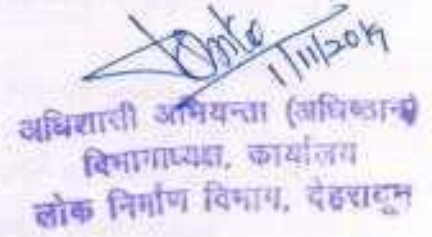 1/11/2017
अधिशासी अभियन्ता (अधिष्ठान)
विभागाध्यक्ष, कार्यालय
लोक निर्माण विभाग, देहरादून